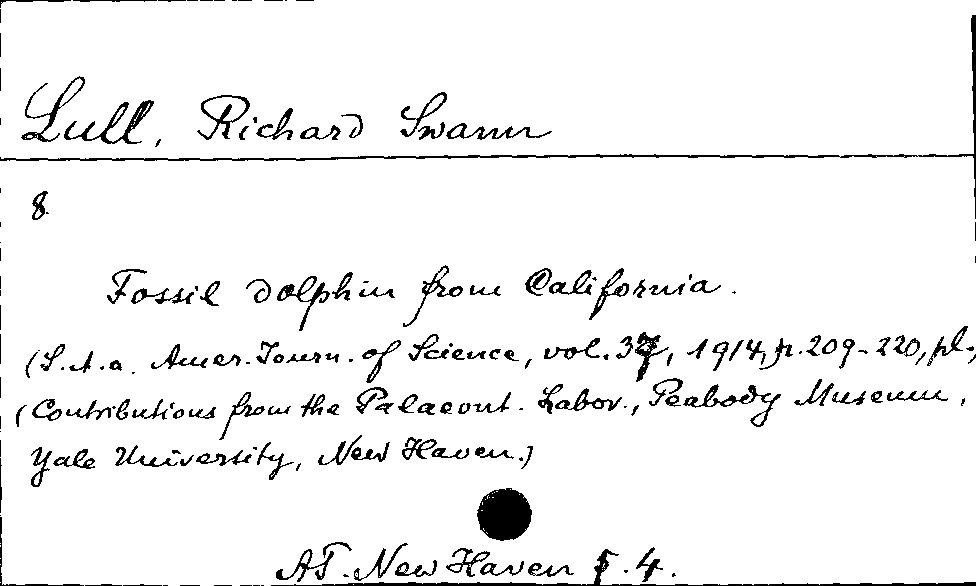 Lull, Richard Swann
8
Fossil dolphin from California.
(S.A.a. Amer. Journ. of Science, vol. 37, 1914, p. 209-220, pl.,
(Contributions from the Palaeont. Labor., Peabody Museum,
Yale University, New Haven.)
AT. New Haven 5.4.